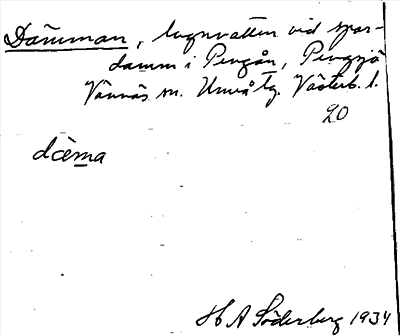 Dämman, lugnvatten vid spar-
damm i Pengån, Pengsjö
Vännäs sn. Umeå tg. Västerb. l.
20
dæma
H A Söderberg 1934